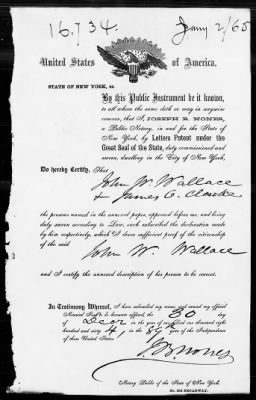 16.734.
Jany 2/65
United States of America.
STATE OF NEW YORK, ss.
By this Public Instrument be it known,
to all whom the same doth or may in anywise
concern, that I, JOSEPH B. NONES,
a Public Notary, in and for the State of
New York, by Letters Patent under the
Great Seal of the State, duly commissioned and
sworn, dwelling in the City of New York,
Do hereby Certify, That
John W. Wallace
& James C. Clarke
the persons named in the annexed paper, appeared before me, and being
duly sworn according to Law, each subscribed the declaration made
by him respectively, which I deem sufficient proof of the citizenship
of the said
John W. Wallace
and I certify the annexed description of his person to be correct.
In Testimony Whereof, I have subscribed my name and caused my official
Notarial Seal to be hereunto affixed, the 30 day
of Decr in the year of our Lord one thousand eight
hundred and sixty 4, in the 89 year of the Independence
of these United States.
J B Nones
Notary Public of the State of New York.
No. 262 BROADWAY.